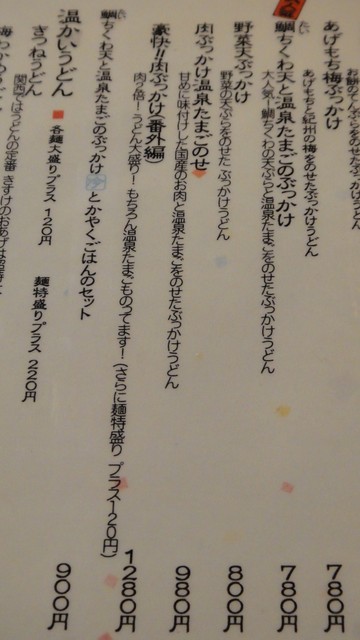 あげもち梅ぶっかけ 780円
あげもちと紀州の梅をのせたぶっかけうどん
鯛ちくわ天と温泉たまごのぶっかけ 780円
大人気!鯛ちくわの天ぷらと温泉たまごをのせたぶっかけうどん
野菜天ぶっかけ 800円
野菜の天ぷらをのせた ぶっかけうどん
肉ぶっかけ温泉たまごのせ 980円
甘めに味付けした国産のお肉と温泉たまごをのせたぶっかけうどん
豪快!!肉ぶっかけ(番外編) 1280円
肉2倍!うどん大盛り!もちろん温泉たまごものってます!(さらに麺特盛り プラス120円)
鯛ちくわ天と温泉たまごのぶっかけ とかやくごはんのセット 900円
温かいうどん ■ 各麺大盛りプラス 120円 麺特盛りプラス 220円
きつねうどん
関西ではうどんの定番